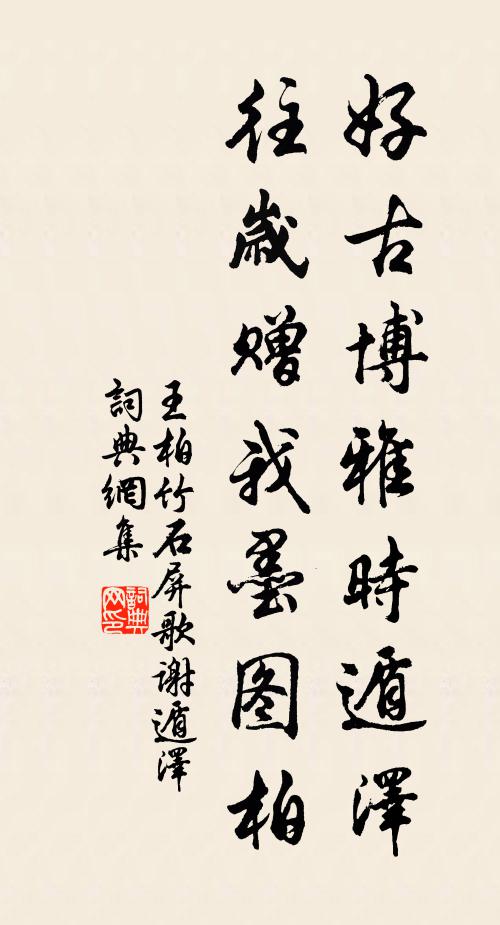 好古博雅時遁澤
往歲贈我墨图柏
王柏竹石屏歌谢遁澤
詞典網集
詞典网印